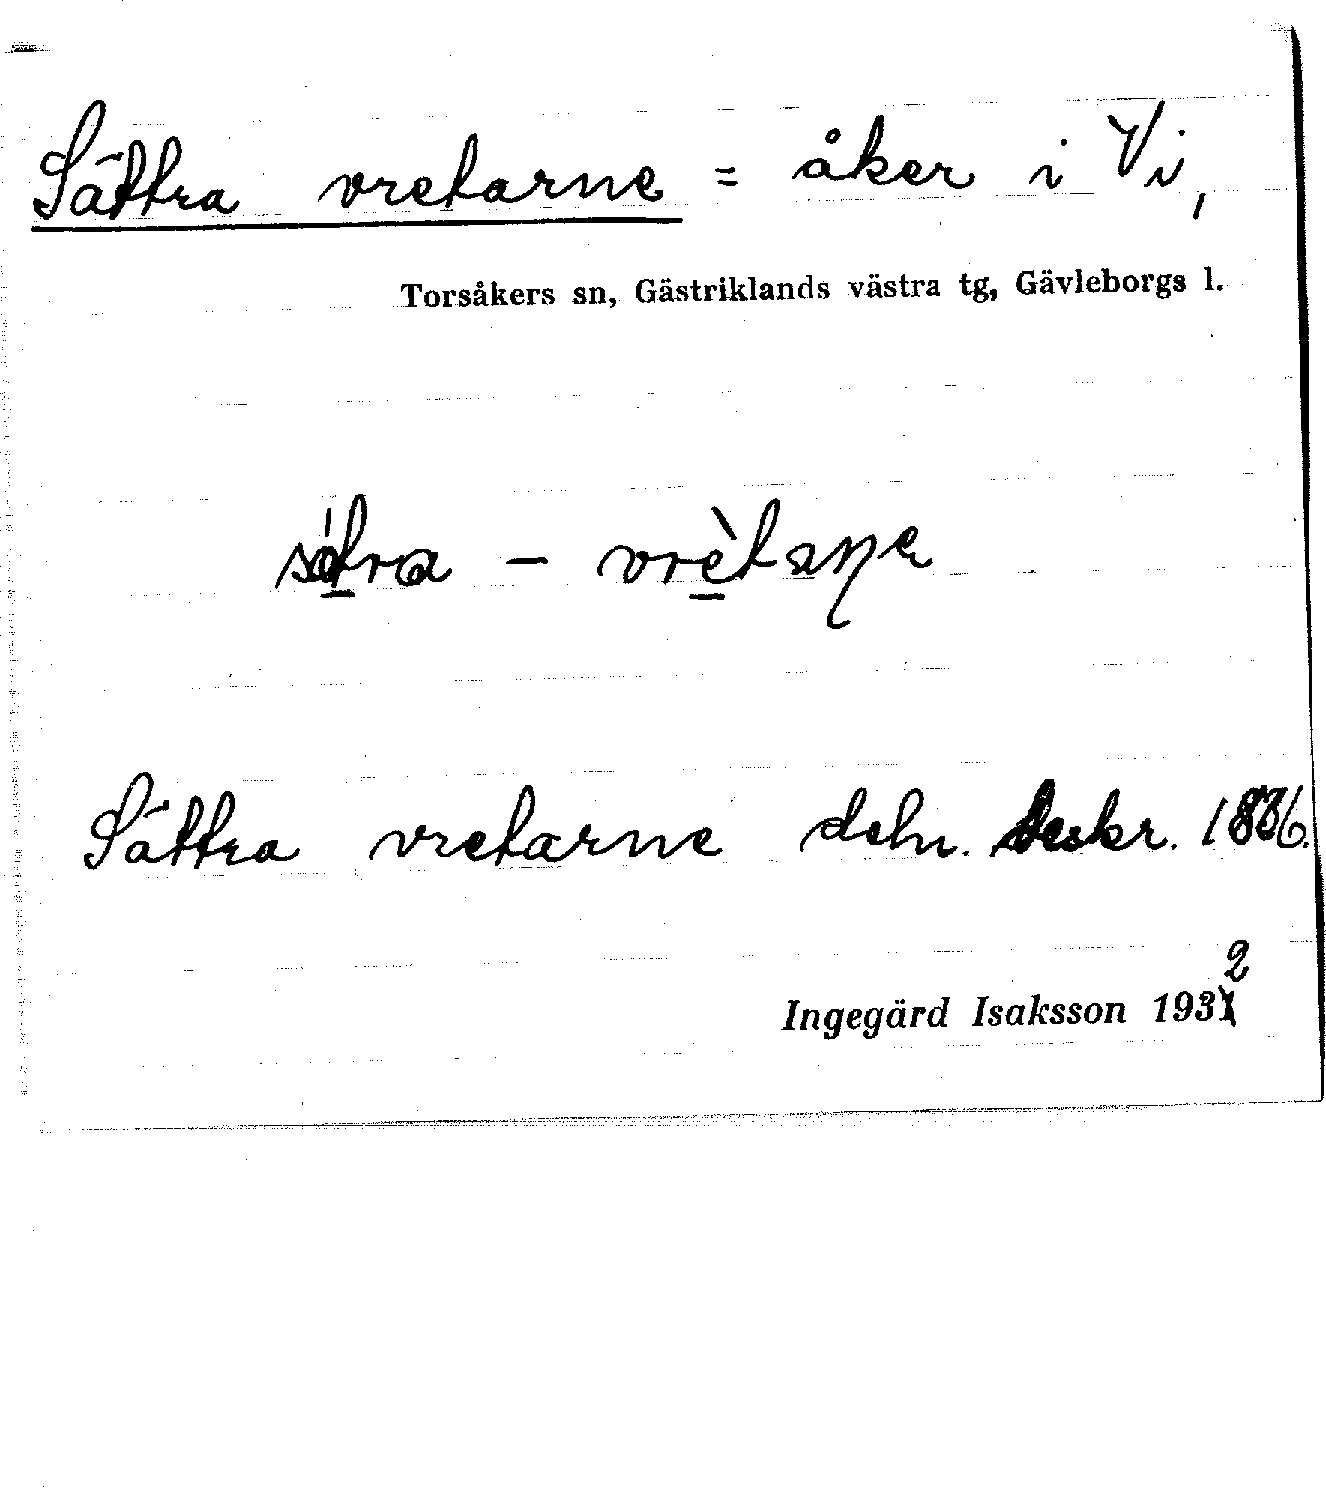 Sättra vretarne = åker i Vi,
Torsåkers sn, Gästriklands västra tg, Gävleborgs l.
sátra - vrètaṇe
Sättra vretarne deln. beskr. 1836.
Ingegärd Isaksson 1932